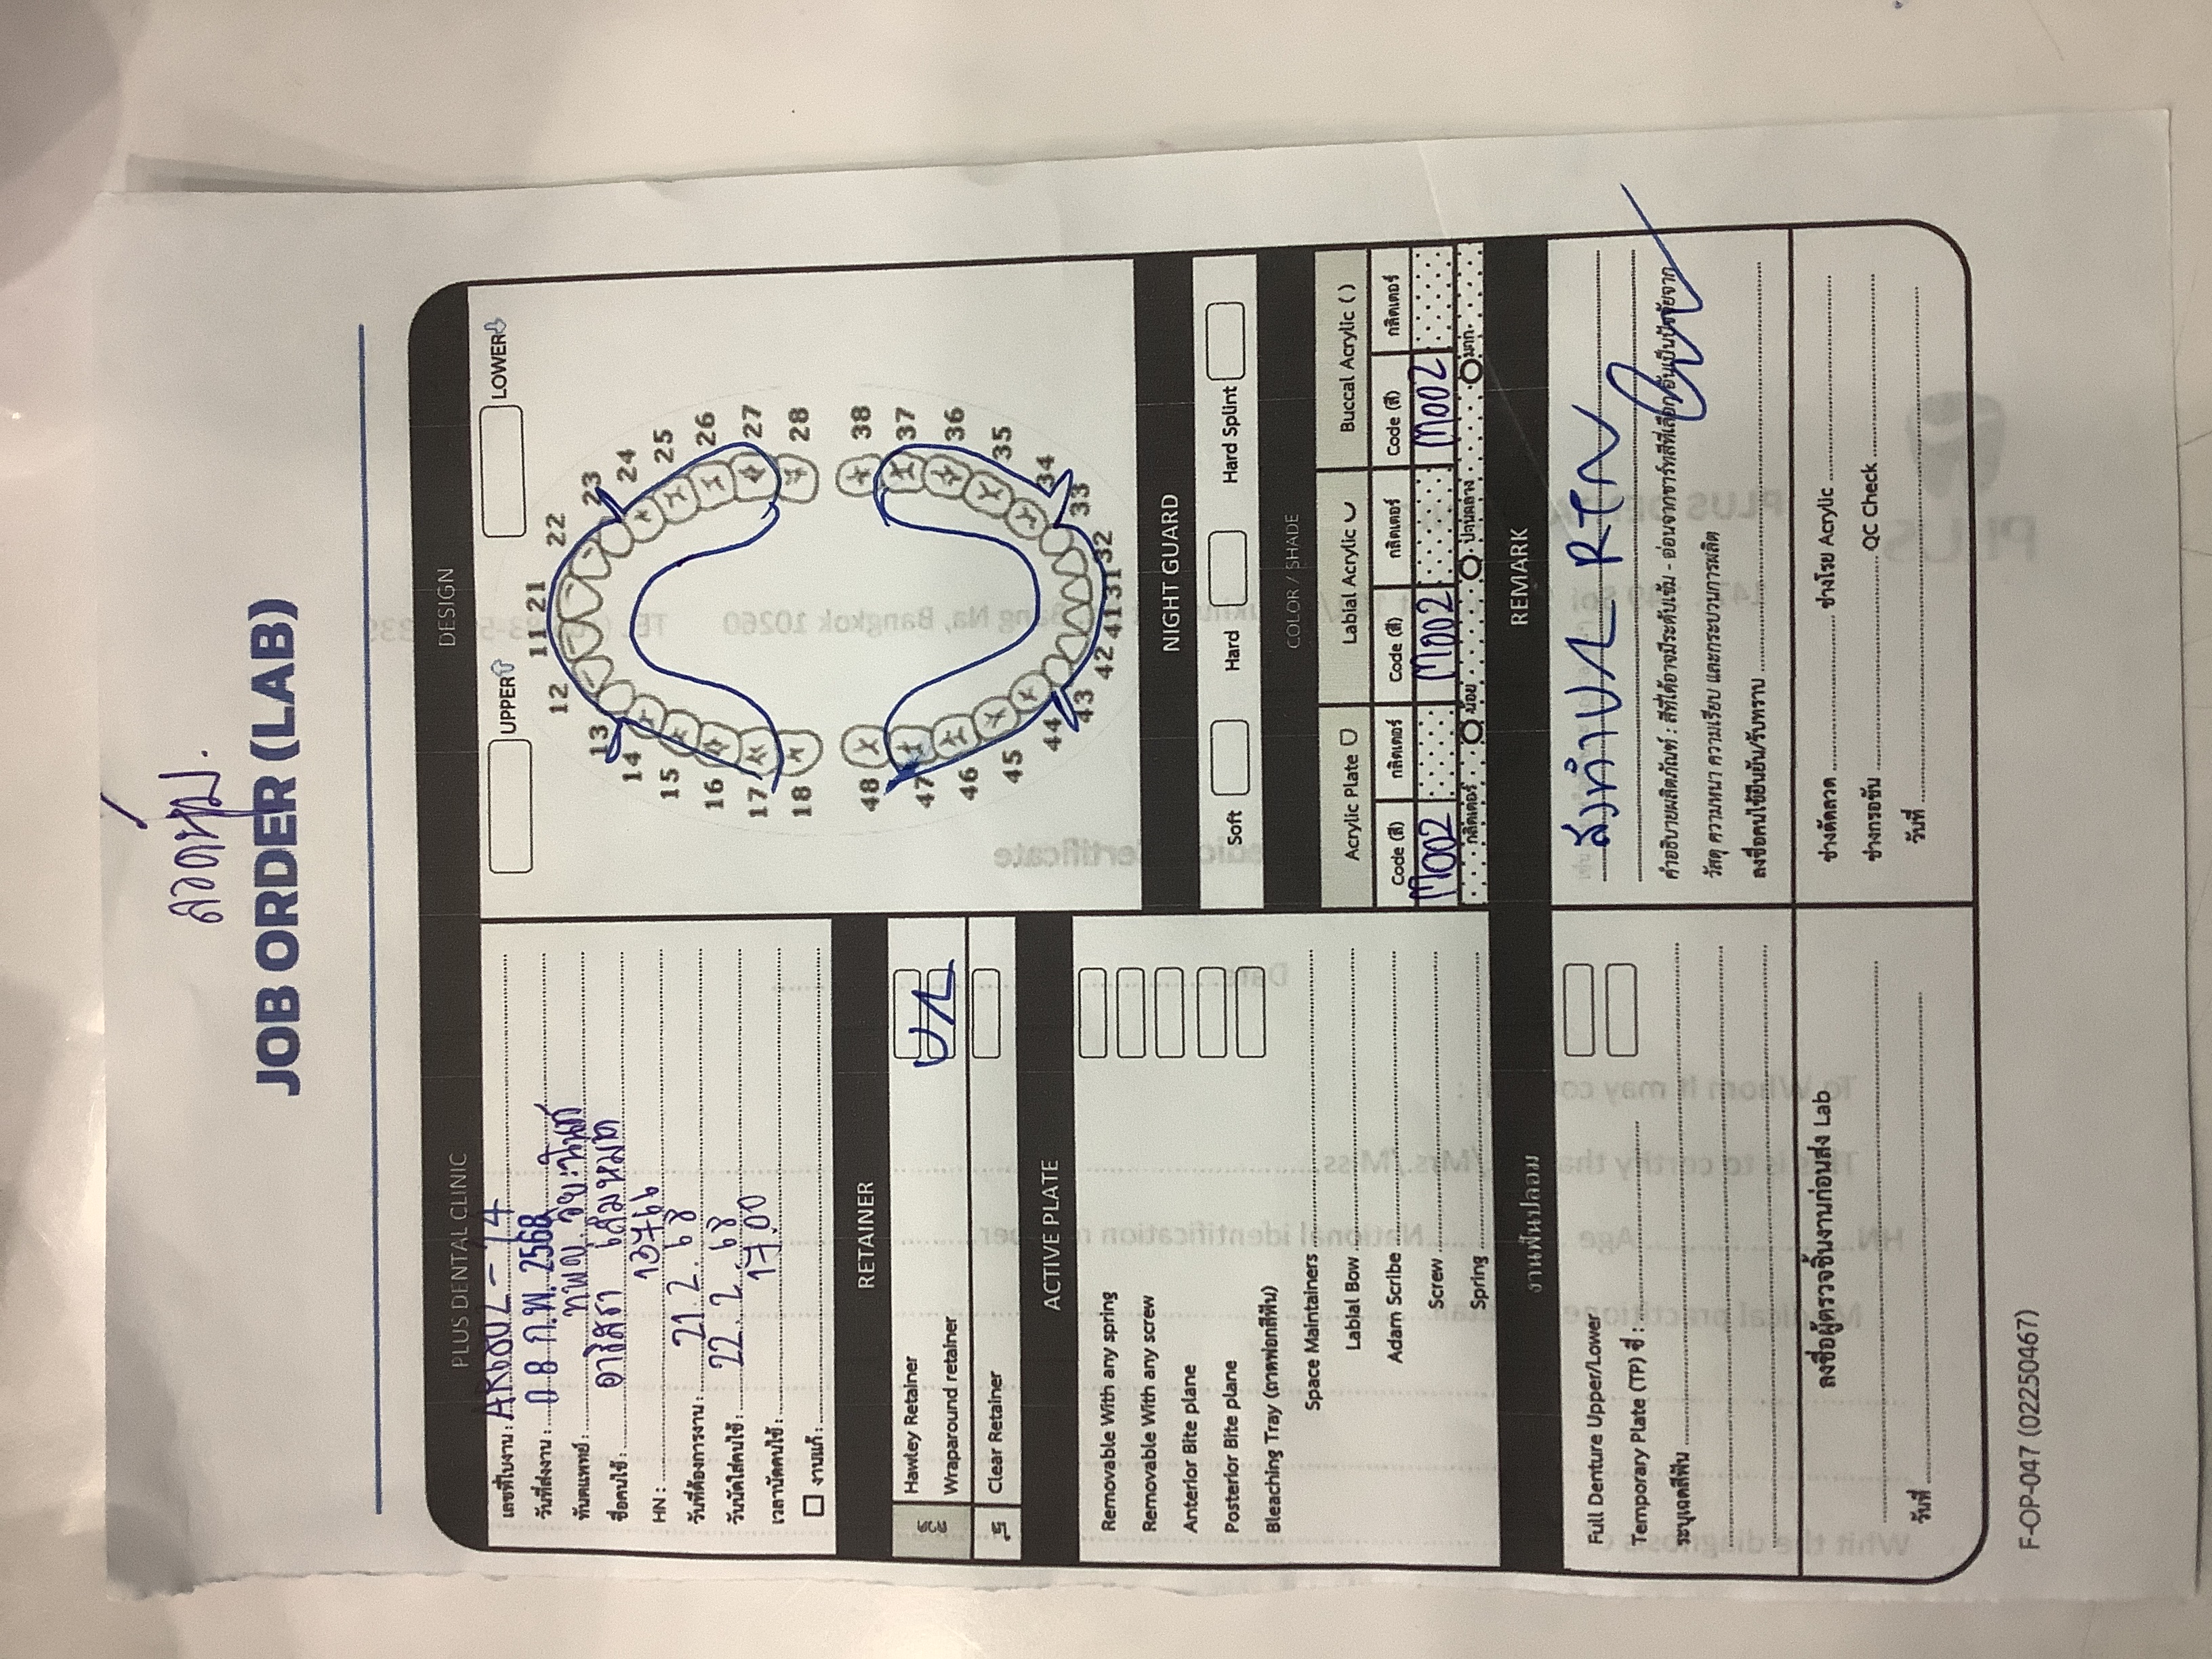 ลวดหุ้ม.
JOB ORDER (LAB)
PLUS DENTAL CLINIC
เลขที่ใบงาน : AR6802-74
วันที่ส่งงาน : 08 ก.พ. 2568
ทันตแพทย์ : ทพญ.
ชื่อคนไข้ : อาริสรา เส็มหมาด
HN : 13766
วันที่ต้องการงาน : 21.2.68
วันนัดใส่คนไข้ : 22.2.68
เวลานัดคนไข้ : 17.00
งานแก้ :
RETAINER
ลวด
Hawley Retainer
Wraparound retainer U/L
ใส
Clear Retainer
ACTIVE PLATE
Removable With any spring
Removable With any screw
Anterior Bite plane
Posterior Bite plane
Bleaching Tray (ถาดฟอกสีฟัน)
Space Maintainers
Labial Bow
Adam Scribe
Screw
Spring
งานฟันปลอม
Full Denture Upper/Lower
Temporary Plate (TP) ซี่ :
ระบุเฉดสีฟัน
ลงชื่อผู้ตรวจชิ้นงานก่อนส่ง Lab
วันที่
DESIGN
UPPER LOWER
11 21
12 22
13 23
14 24
15 25
16 26
17 27
18 28
48 38
47 37
46 36
45 35
44 34
43 33
42 41 31 32
NIGHT GUARD
Soft Hard Hard Splint
COLOR / SHADE
Acrylic Plate Labial Acrylic Buccal Acrylic ( )
Code (สี) กลิตเตอร์ Code (สี) กลิตเตอร์ Code (สี) กลิตเตอร์
M002 M002 M002
กลิตเตอร์ น้อย ปานกลาง มาก
REMARK
ส่งทำ U/L RTN
คำอธิบายผลิตภัณฑ์ : สีที่ได้อาจมีระดับเข้ม - อ่อนจากชาร์ทสีที่เลือก อันเป็นปัจจัยจาก
วัสดุ ความหนา ความเรียบ และกระบวนการผลิต
ลงชื่อคนไข้ยืนยัน/รับทราบ
ช่างดัดลวด ช่างโรย Acrylic
ช่างกรอขัน QC Check
วันที่
F-OP-047 (02250467)